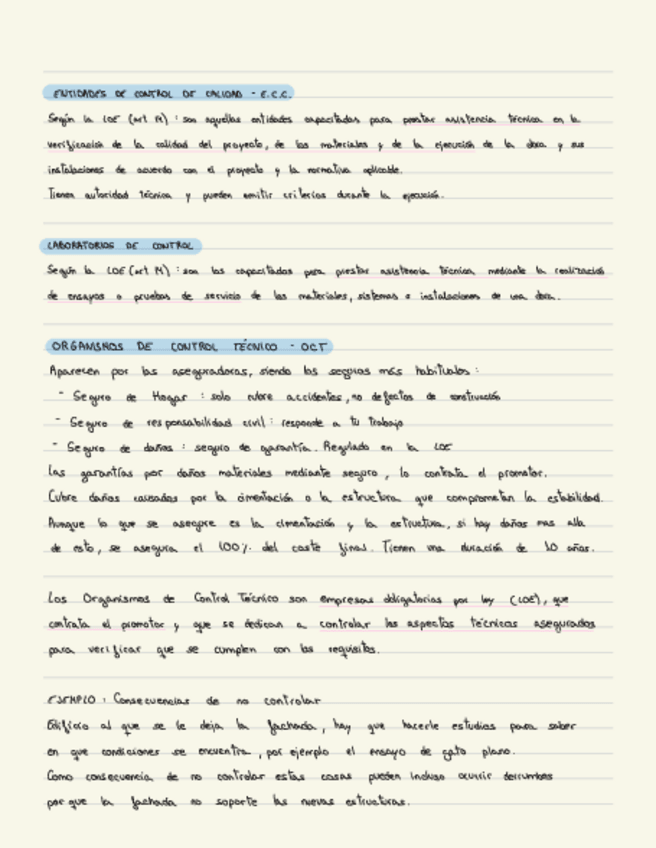 ENTIDADES DE CONTROL DE CALIDAD - E.C.C.
Según la LOE (art 14) : son aquellas entidades capacitadas para prestar asistencia técnica en la
verificación de la calidad del proyecto, de los materiales y de la ejecución de la obra y sus
instalaciones de acuerdo con el proyecto y la normativa aplicable.
Tienen autoridad técnica y pueden emitir criterios durante la ejecución.
LABORATORIOS DE CONTROL
Según la LOE (art 14) : son los capacitados para prestar asistencia técnica mediante la realización
de ensayos o pruebas de servicio de los materiales, sistemas o instalaciones de una obra.
ORGANISMOS DE CONTROL TÉCNICO - OCT
Aparecen por las aseguradoras, siendo los seguros más habituales :
- Seguro de Hogar : solo cubre accidentes, no defectos de construcción
- Seguro de responsabilidad civil : responde a tu trabajo
- Seguro de daños : seguro de garantía. Regulado en la LOE
Las garantías por daños materiales mediante seguro, lo contrata el promotor.
Cubre daños causados por la cimentación o la estructura que comprometan la estabilidad.
Aunque lo que se asegure es la cimentación y la estructura, si hay daños mas alla
de esto, se asegura el 100% del coste final. Tienen una duración de 10 años.
Los Organismos de Control Técnico son empresas obligatorias por ley (LOE), que
contrata el promotor y que se dedican a controlar los aspectos técnicos asegurados
para verificar que se cumplen con los requisitos.
EJEMPLO : Consecuencias de no controlar
Edificio al que se le deja la fachada, hay que hacerle estudios para saber
en que condiciones se encuentra, por ejemplo el ensayo de gato plano.
Como consecuencia de no controlar estas cosas pueden incluso ocurrir derrumbes
por que la fachada no soporte las nuevas estructuras.